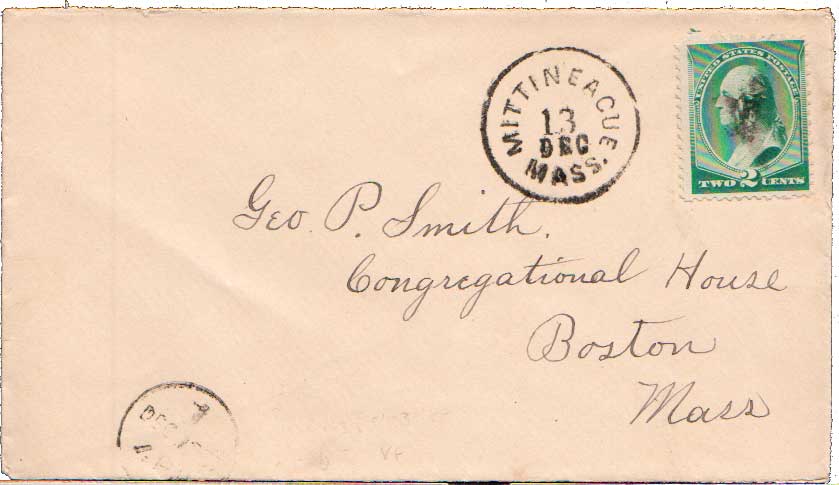 MITTINEAGUE
13
DEC
MASS.
UNITED STATES POSTAGE
TWO 2 CENTS
Geo. P. Smith.
Congregational House
Boston
Mass
DEC
VF